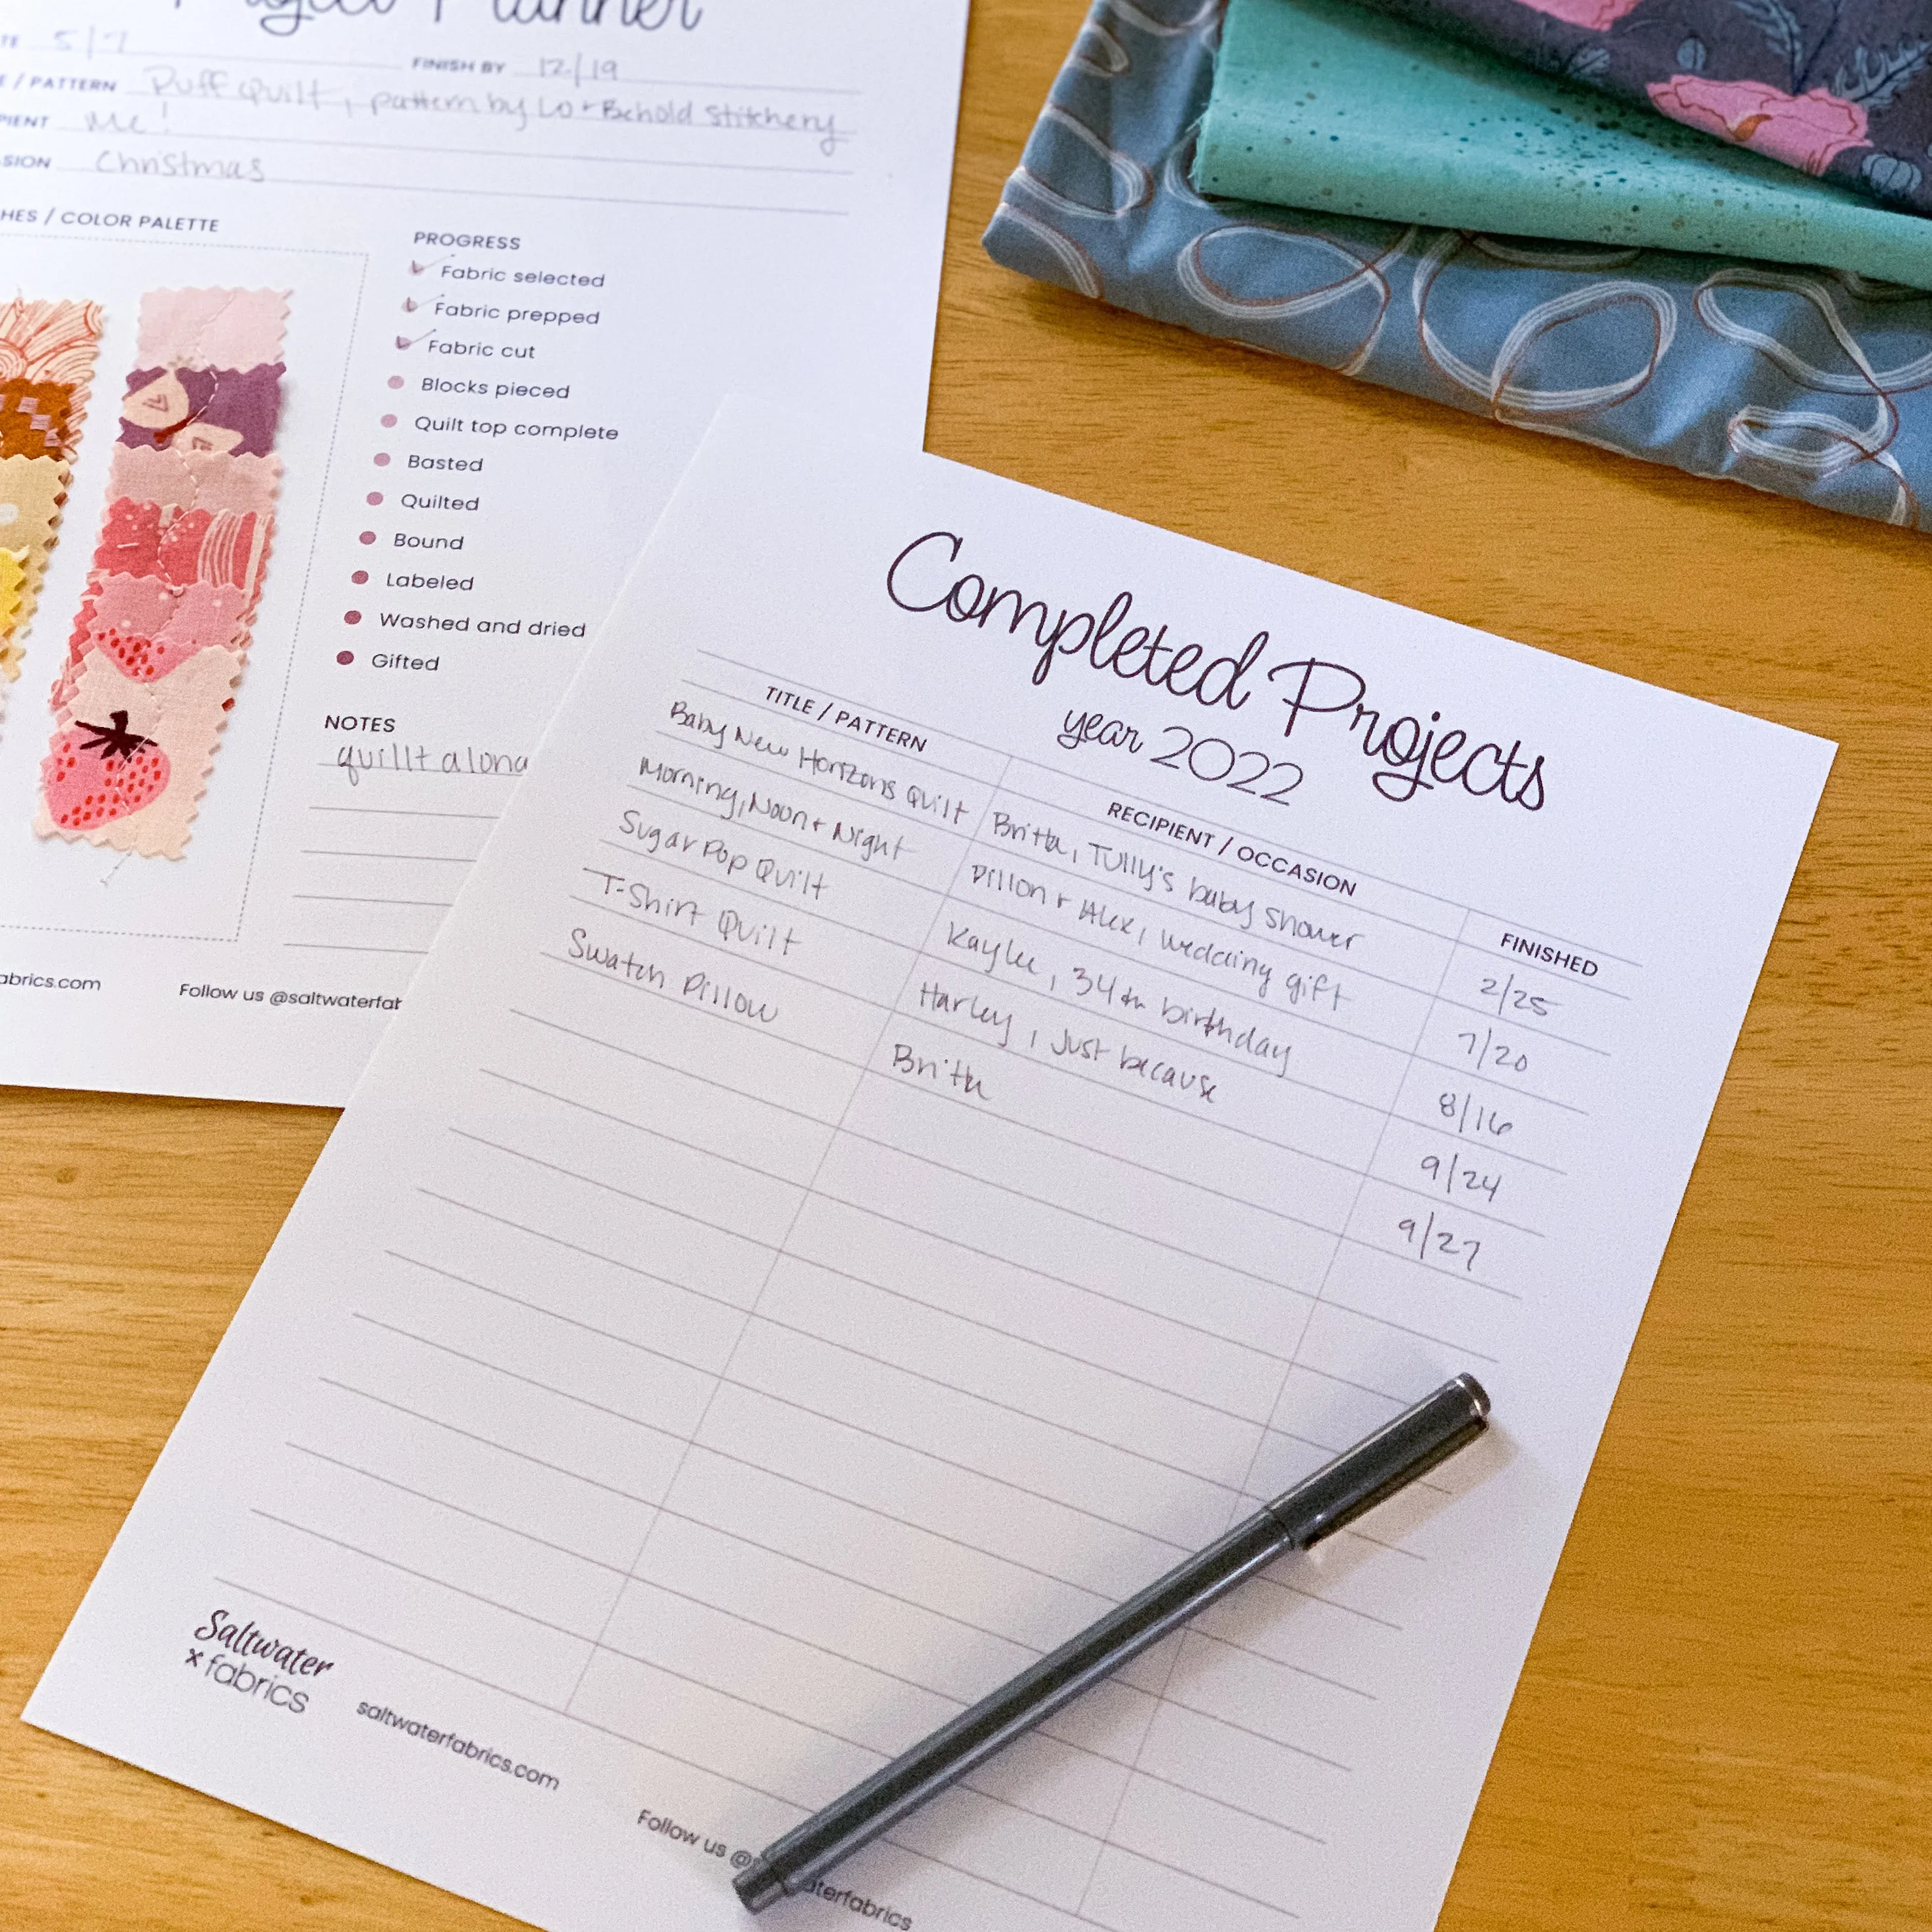 Project Planner
5/7
FINISH BY 12/19
/ PATTERN Puff Quilt, pattern by Lo + Behold Stitchery
Me!
Christmas
/ COLOR PALETTE
PROGRESS
Fabric selected
Fabric prepped
Fabric cut
Blocks pieced
Quilt top complete
Basted
Quilted
Bound
Labeled
Washed and dried
Gifted
NOTES
quillt along
abrics.com Follow us @saltwaterfab
Completed Projects
year 2022
TITLE / PATTERN RECIPIENT / OCCASION FINISHED
Baby New Horizons Quilt Britta, Tully's baby shower 2/25
Morning, Noon + Night Dillon + Alex, wedding gift 7/20
Sugar Pop Quilt Kaylee, 34th birthday 8/16
T-Shirt Quilt Harley, Just because 9/24
Swatch Pillow Britta 9/27
Saltwater
fabrics
saltwaterfabrics.com
Follow us @s aterfabrics